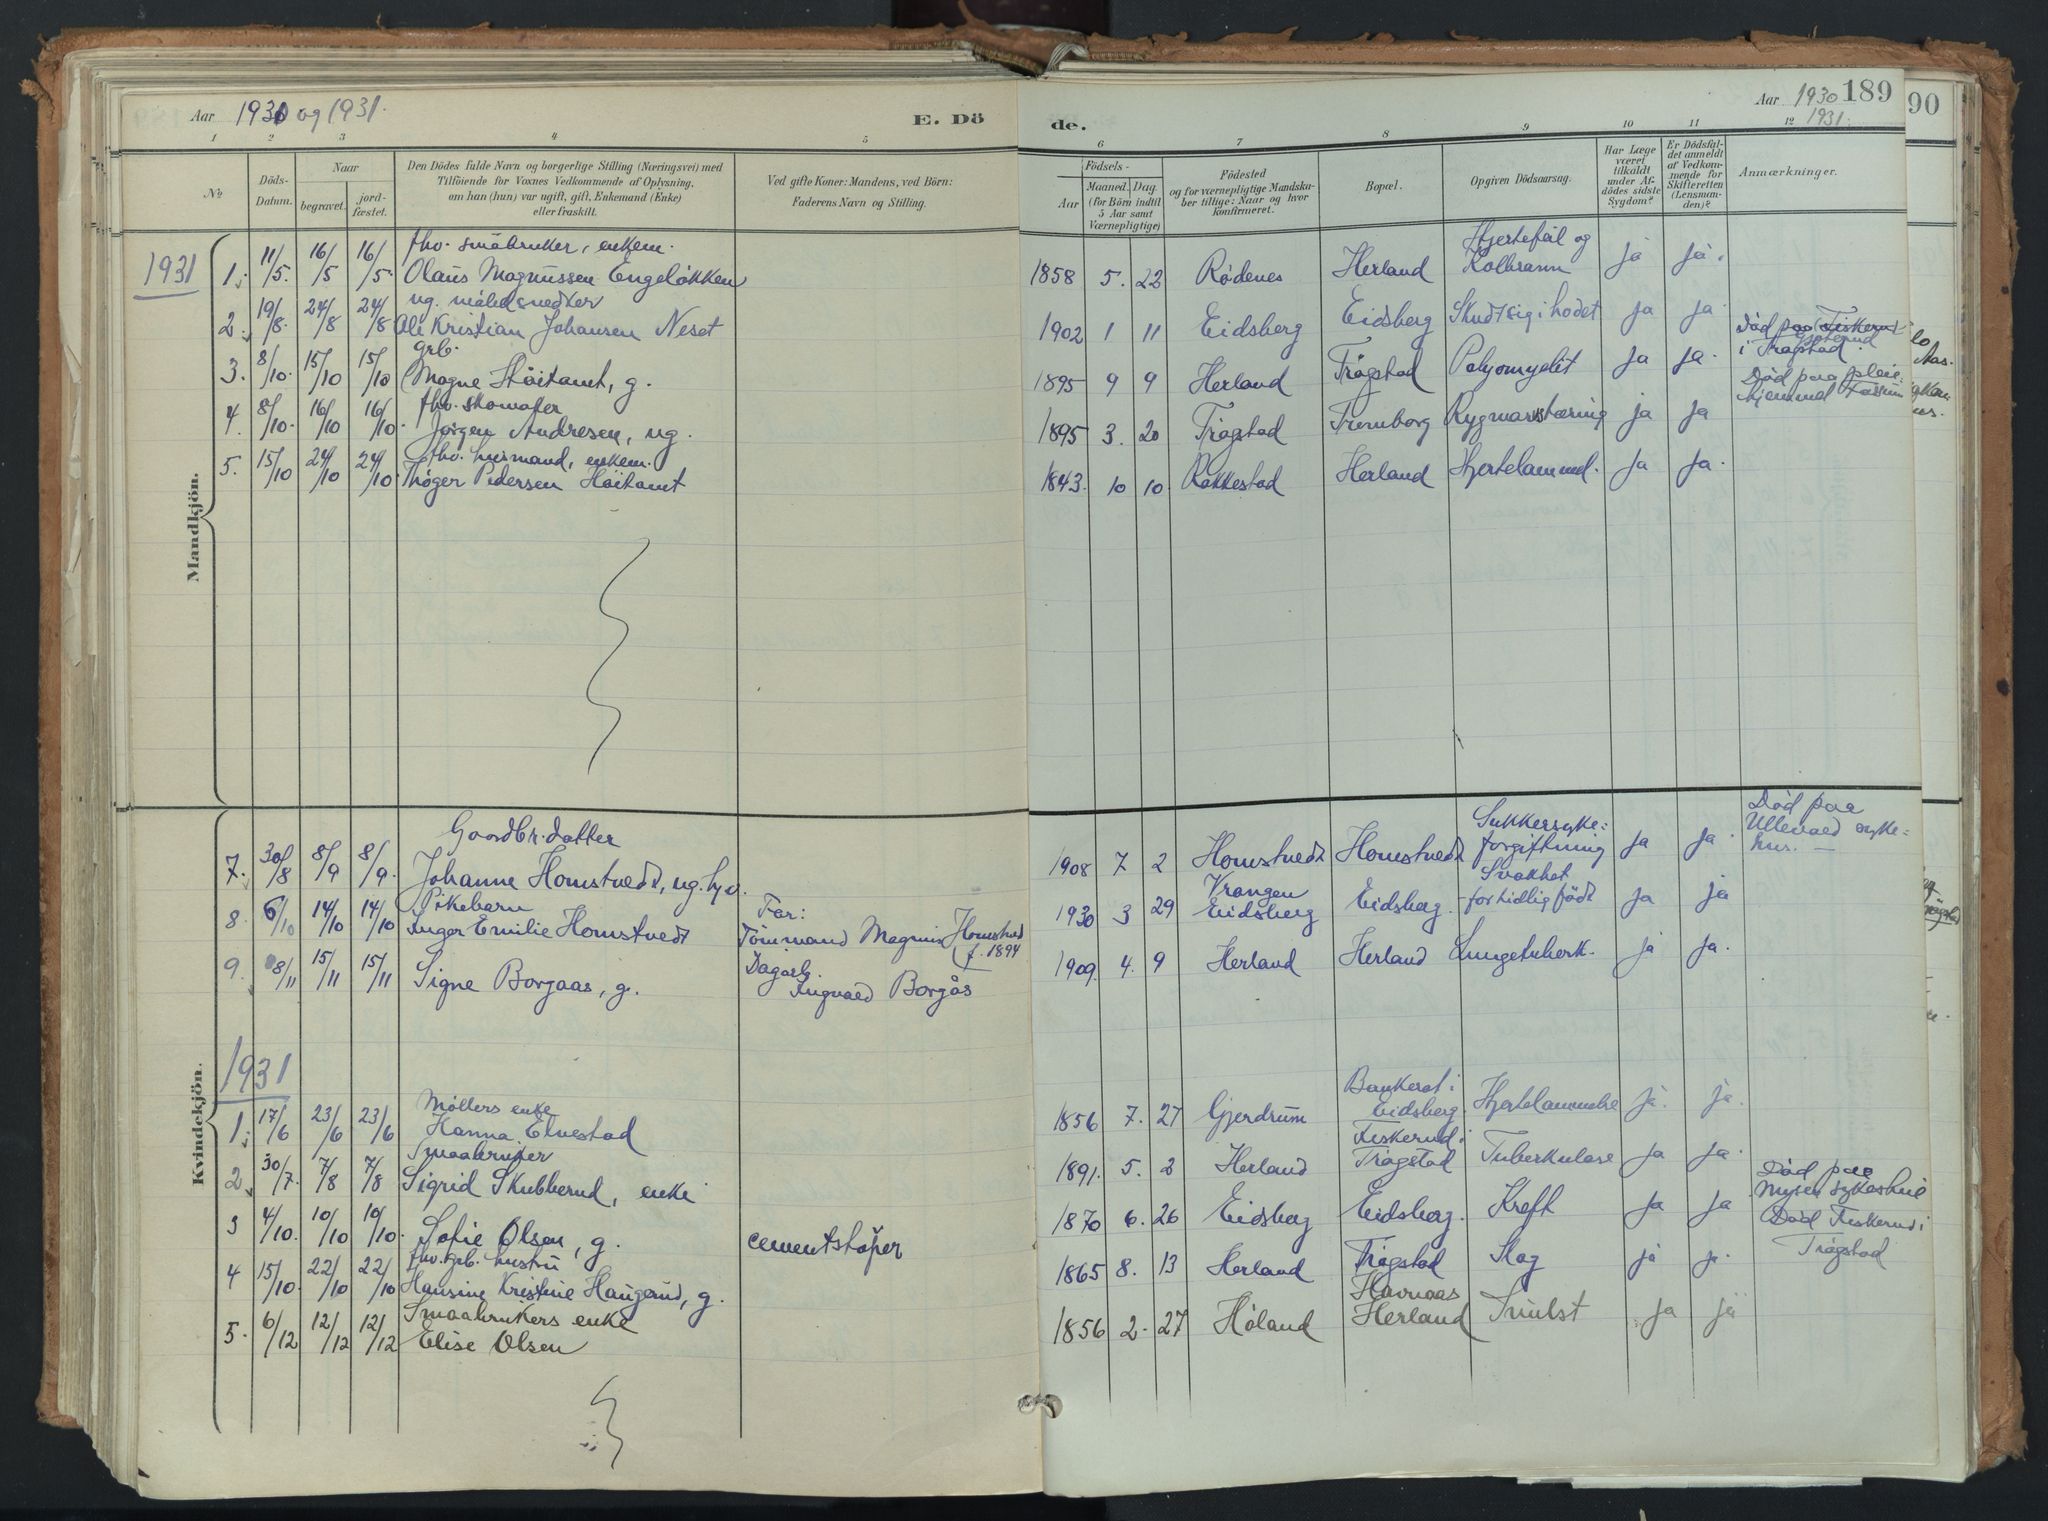 Aar 1930 og 1931.
E. Dö
de.
Aar 1930 189
1931.
90
1 2 3 4 5 6 7 8 9 10 11 12
No.
Döds-
Datum.
Naar
begravet.
jord-
fæstet.
Den Dödes fulde Navn og borgerlige Stilling (Næringsvei) med
Tilföiende for Voxnes Vedkommende af Oplysning,
om han (hun) var ugift, gift, Enkemand (Enke)
eller fraskilt.
Ved gifte Koner: Mandens, ved Börn:
Faderens Navn og Stilling.
Födsels-
Aar
Maaned. Dag.
(for Börn indtil
5 Aar samt
Værnepligtige)
Födested
og for værnepligtige Mandska-
ber tillige: Naar og hvor
konfirmeret.
Bopæl.
Opgiven Dödsaarsag.
Har Læge
været
tilkaldt
under Af-
dödes sidste
Sygdom?
Er Dödsfal-
det anmeldt
af Vedkom-
mende for
Skifteretten
(Lensman-
den)?
Anmærkninger.
Mandkjön.
1931
fhv. småbruker, enkem.
1. 11/5. 16/5 16/5. Olaus Magnussen Engeløkken 1858 5. 22 Rødenes Herland Hjertefeil og
Kolbrann ja ja.
ug. møbelsnedker
2. 19/8. 24/8 24/8 Ole Kristian Johansen Neset 1902 1 11 Eidsberg Eidsberg Skudt sig i hodet ja ja.
grb.
3. 8/10. 15/10 15/10 Magne Høitomt, g. 1895 9 9 Herland Trøgstad Polyomyelit ja ja. Død paa Fiskerud
i Trøgstad.
fhv. skomaker
4. 8/10. 16/10 16/10. Jørgen Andresen, ug. 1895 3. 20 Trøgstad Tromborg Rygmarvstæring ja ja Død paa pleie-
hjemmet Fossum
fhv. husmand, enkem.
5. 15/10 24/10 24/10. Thøger Pedersen Høitomt 1843. 10 10. Rakkestad Herland Hjertelammel. ja ja.
Kvindekjön.
Gaardbr. datter
7. 30/8 8/9 8/9. Johanne Homstvedt, ug. 1908 7 2 Homstvedt Homstvedt Sukkersyke-
forgiftning ja ja. Død paa
Ullevaal syke-
hus.
Pikebarn
8. 6/10 14/10 14/10 Inger Emilie Homstvedt Far:
Tømmand Magnus Homstved
f. 1894 1930 3 29 Vrangen
Eidsberg Eidsberg. Svakhet
-for tidlig født ja ja
9. 8/11 15/11 15/11 Signe Borgaas, g. Dagarb.
Ingvald Borgås 1909. 4. 9 Herland Herland Lungetuberk. ja ja.
1931
Møllers enke
1. 17/6 23/6 23/6 Hanna Elvestad 1856 7. 27 Gjerdrum Bankerot i
Eidsberg Hjertelammelse ja. ja.
Smaabruker
2. 30/7. 7/8 7/8 Sigrid Skubberud, enke 1891. 5. 2 Herland Fiskerud i
Trøgstad Tuberkulose ja ja.
3 4/10. 10/10 10/10. Sofie Olsen, g. cementstøper 1870 6. 26 Eidsberg Eidsberg. Kreft ja ja Død paa
Mysen sykehus
fhv. grb. hustru
4 15/10. 22/10 22/10 Hansine Kristine Haugerud, g. 1865 8. 13 Herland Trøgstad Slag ja j. Død Fiskerud i
Trøgstad
Smaabrukers enke
5. 6/12 12/12 12/12 Elise Olsen 1856 2. 27 Høland Havnaas
Herland ja ja